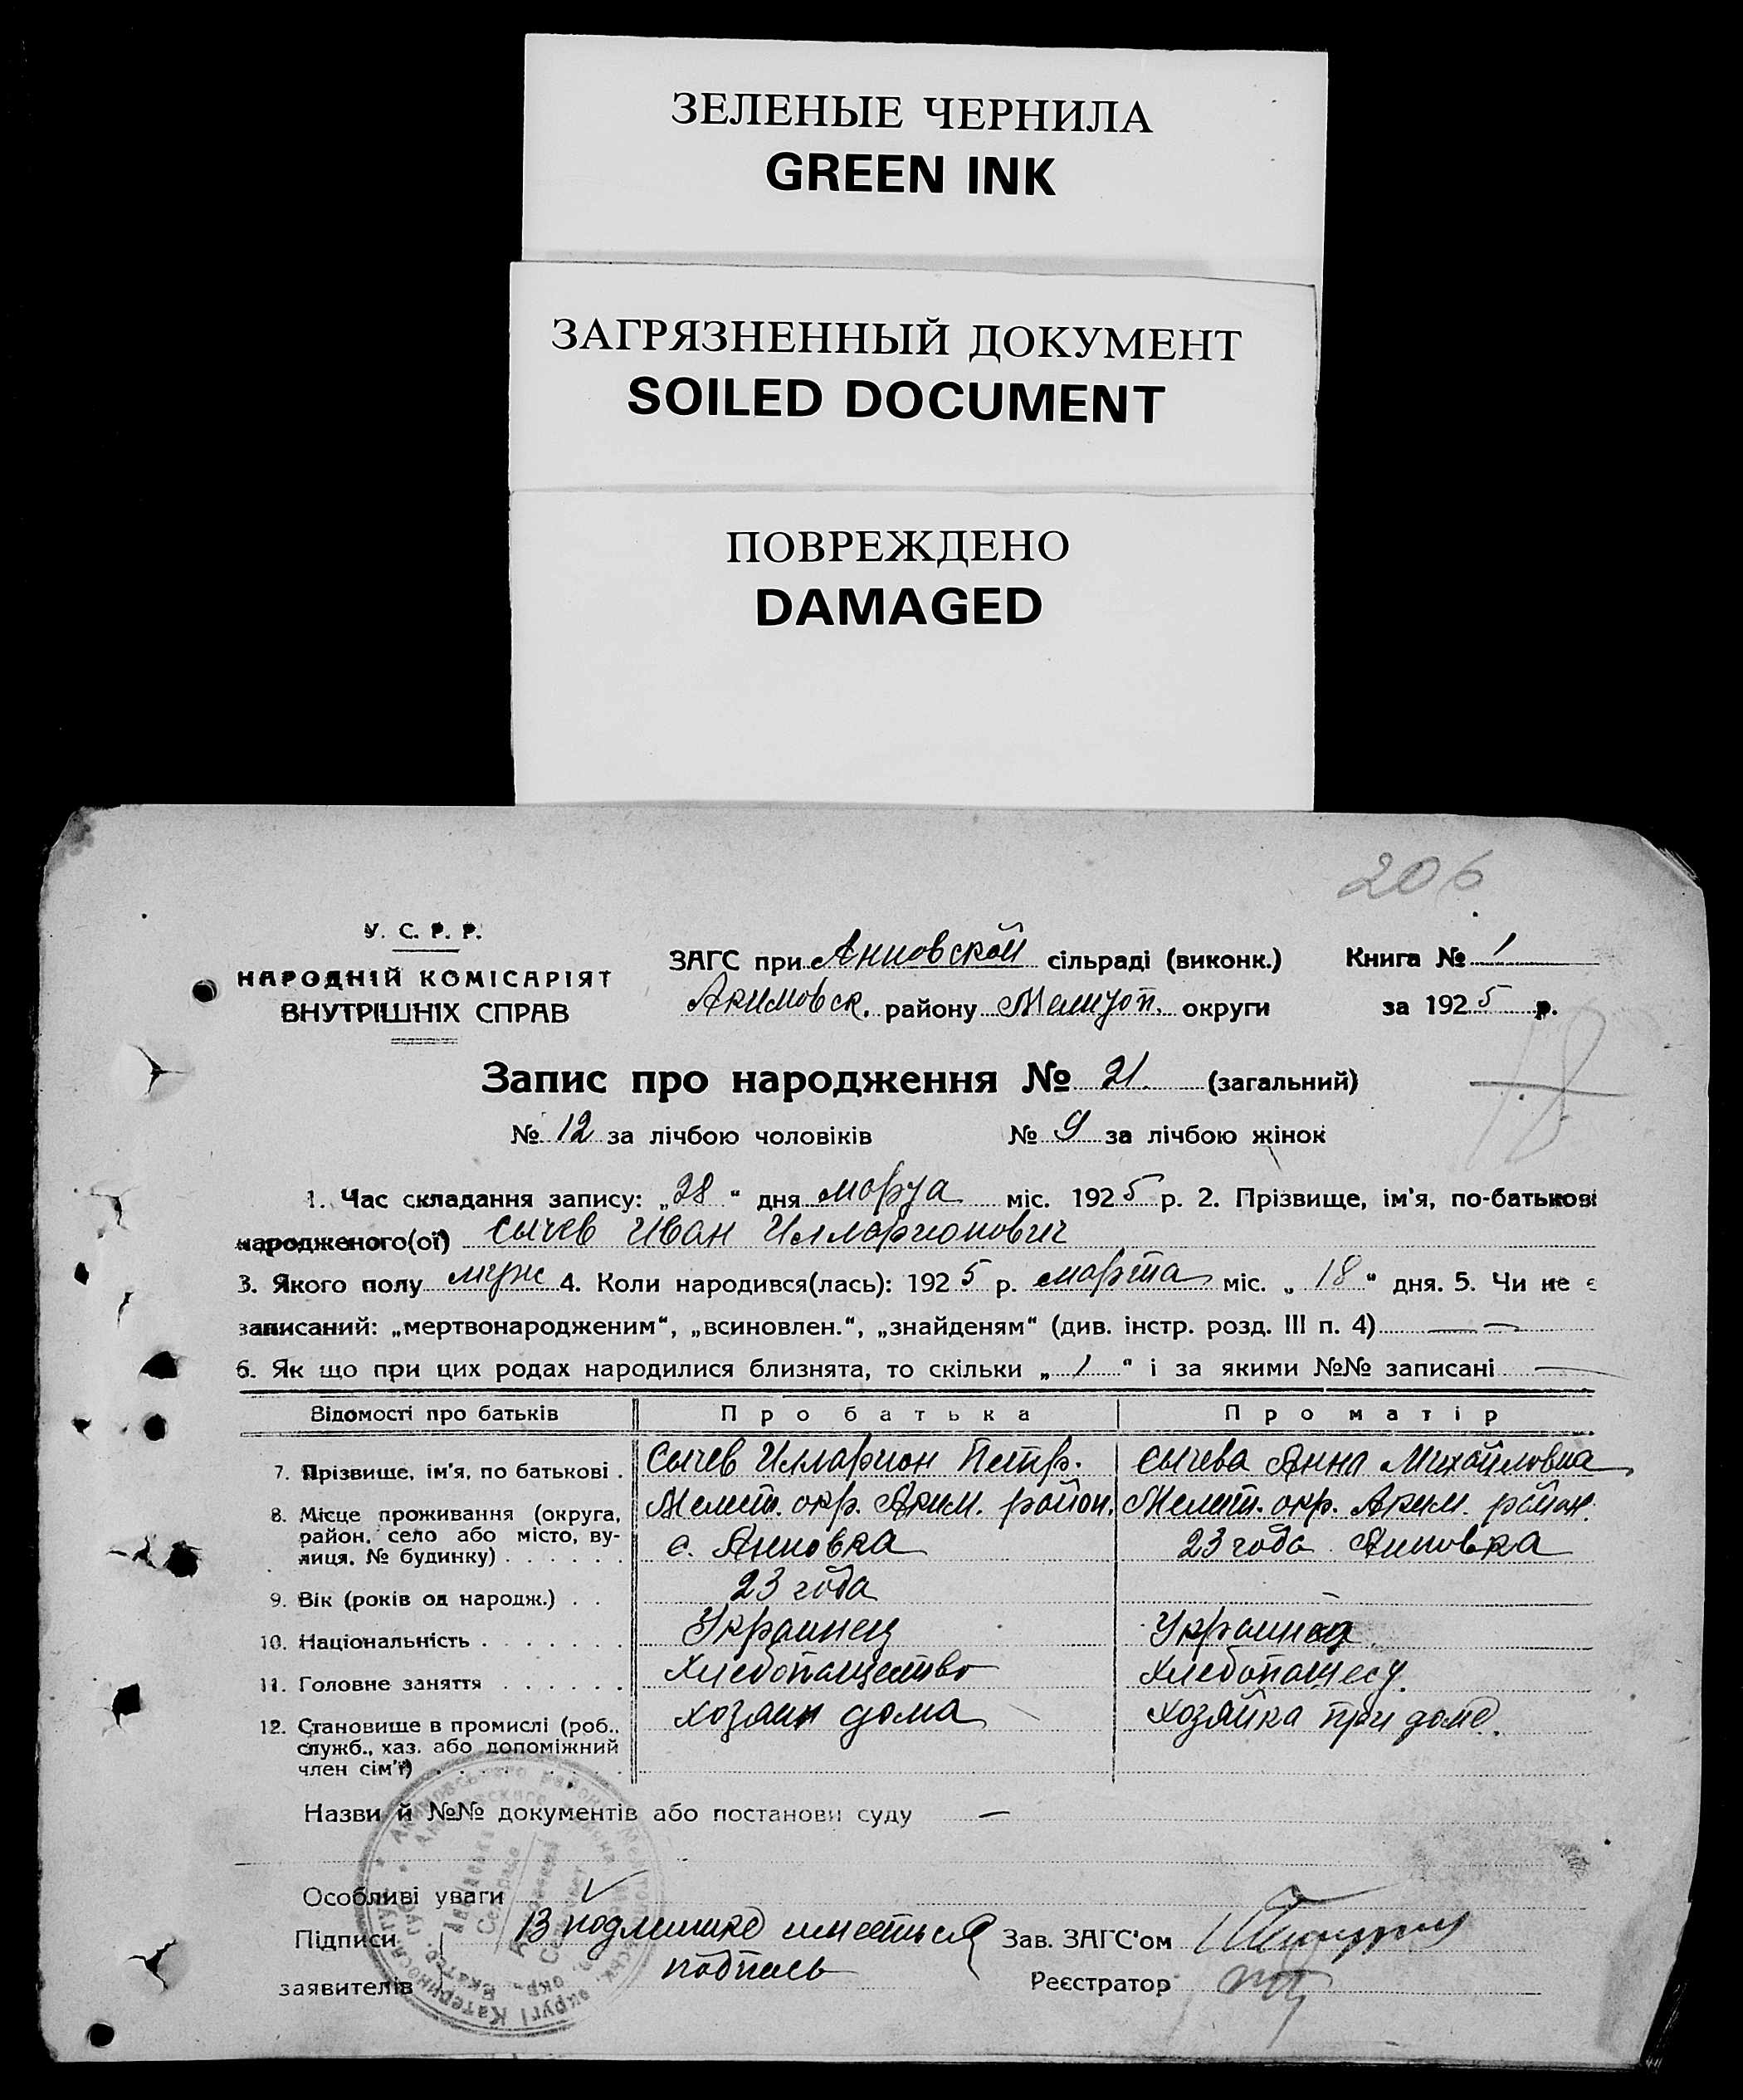 ЗЕЛЕНЫЕ ЧЕРНИЛА
GREEN INK
ЗАГРЯЗНЕННЫЙ ДОКУМЕНТ
SOILED DOCUMENT
ПОВРЕЖДЕНО
DAMAGED
206
У. С. Р. Р.
НАРОДНІЙ КОМІСАРІЯТ
ВНУТРІШНІХ СПРАВ
ЗАГС при Анновской сільраді (виконк.) Книга № 1
Акимовск. району Мелитоп. округи за 1925 р.
18
Запис про народження № 21. (загальний)
№ 12 за лічбою чоловіків № 9 за лічбою жінок
1. Час складання запису: „28“ дня марта міс. 1925 р. 2. Прізвище, ім'я, по-батькові
народженого(ої) Сычев Иван Илларионович
3. Якого полу муж 4. Коли народився(лась): 1925 р. марта міс. „18“ дня. 5. Чи не є
записаний: „мертвонародженим“, „всиновлен.“, „знайденям“ (див. інстр. розд. III п. 4) — —
6. Як що при цих родах народилися близнята, то скільки „1“ і за якими №№ записані —
Відомості про батьків Про батька Про матір
7. Прізвище, ім'я, по батькові . Сычев Илларион Петр. Сычева Анна Михайловна
8. Місце проживання (округа, Мелит. окр. Аким. район. Мелит. окр. Аким. район.
район, село або місто, ву-
лиця, № будинку) . . . . . . с. Анновка 23 года Анновка
9. Вік (років од народж.) . . 23 года
10. Національність . . . . . . . Украинец Украинка
11. Головне заняття . . . . . . Хлебопашество Хлебопашес.
12. Становище в промислі (роб., хозяин дома хозяйка при доме.
служб., хаз. або допоміжний
член сім'ї)
Назви й №№ документів або постанови суду —
Особливі уваги
Підписи В подлинике имееться Зав. ЗАГС'ом
заявителів подпись Реєстратор